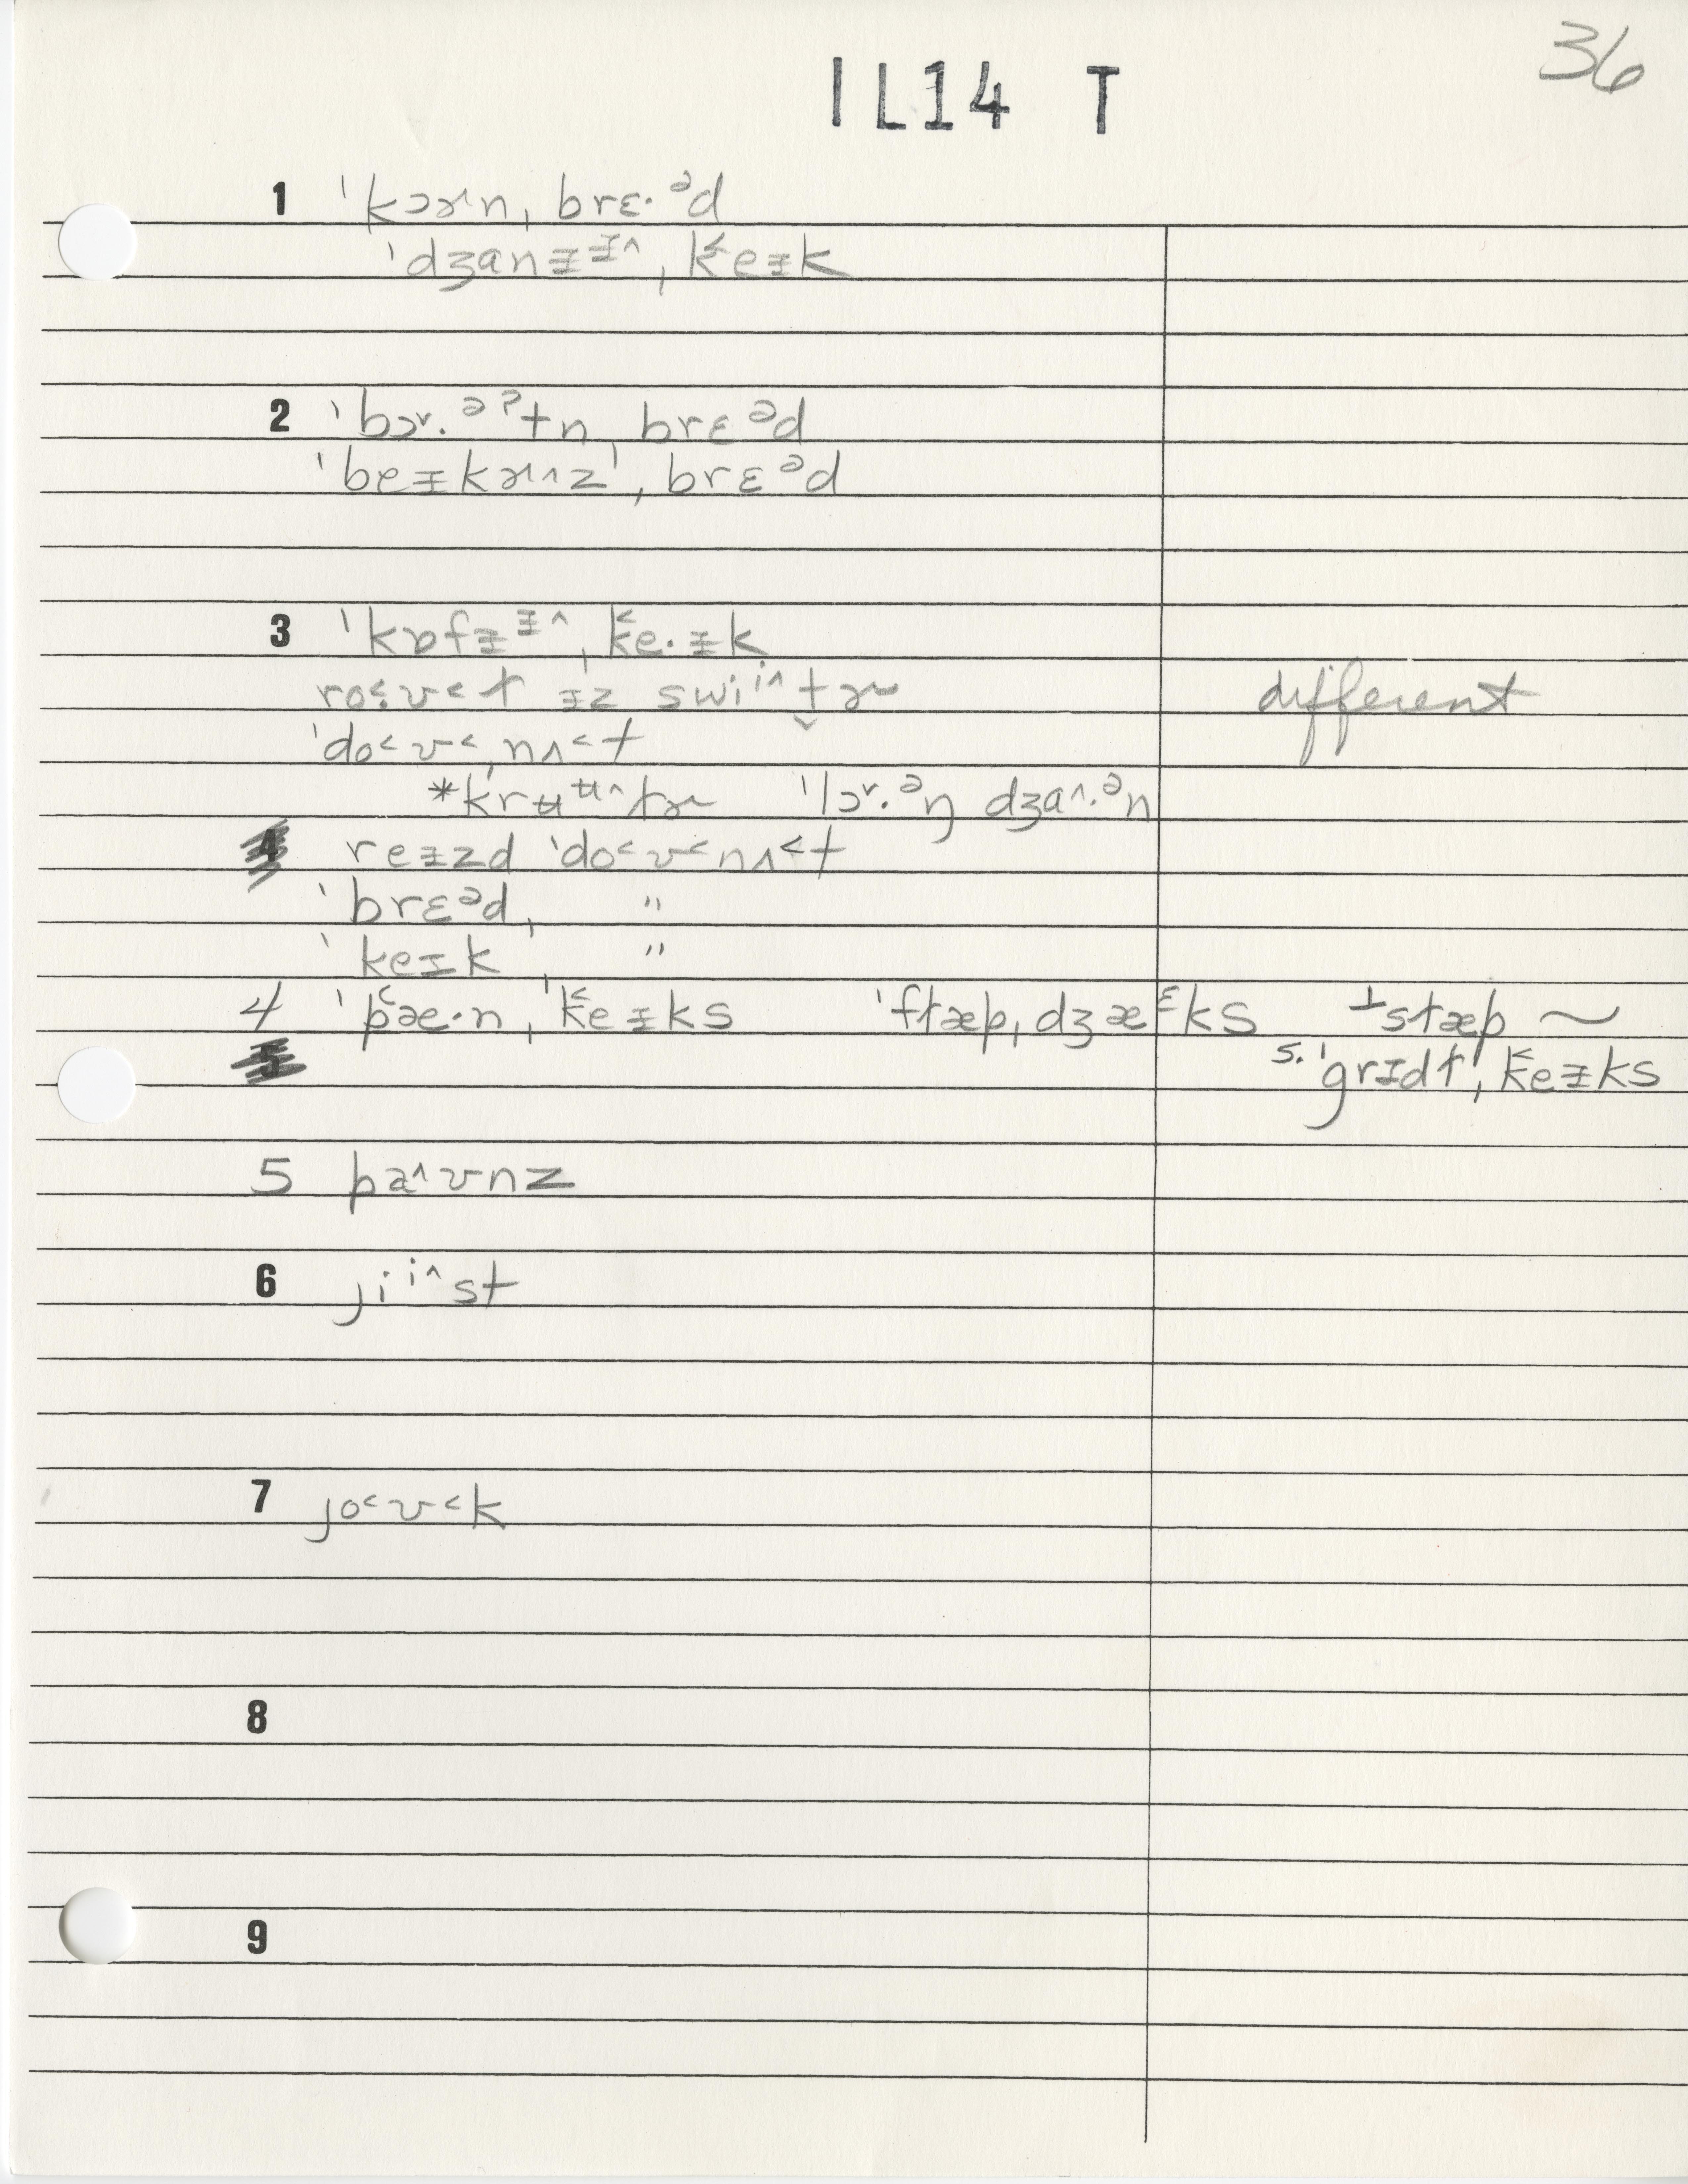 36
IL14 T
1 ˈkɔɚn, brɛ·ᵊd
ˈdʒanɪ̵ᶤ̂, k̔eɪ̵k
2 ˈbɔr·ᵊˀtn brɛᵊd
ˈbeɪ̵kɚ˄zˈ, brɛᵊd
3 ˈkɒfɪ̵ᶤ^, k̔e·ɪ̵k
ro˂ʊ˂t ɪ̵z swiⁱ^t̬ɚ different
ˈdo˂ʊ˂ˌnʌ˂t
*krʉᵘ^lɚ ˈlɔr·ᵊŋ dʒa^·ᵊn
reɪ̵zd ˈdo˂ʊ˂nʌ˂t
ˈbrɛᵊdˌ "
ˈkeɪ̵kˌ "
4 ˈp̔æ·nˌ k̔eɪ̵ks ˈflæpˌdʒæᵋks ⊥stæp ~
5. ˈgrɪdlˌ k̔eɪ̵ks
5 pa^ʊnz
6 jiⁱ^st
7 jo˂ʊ˂k
8
9